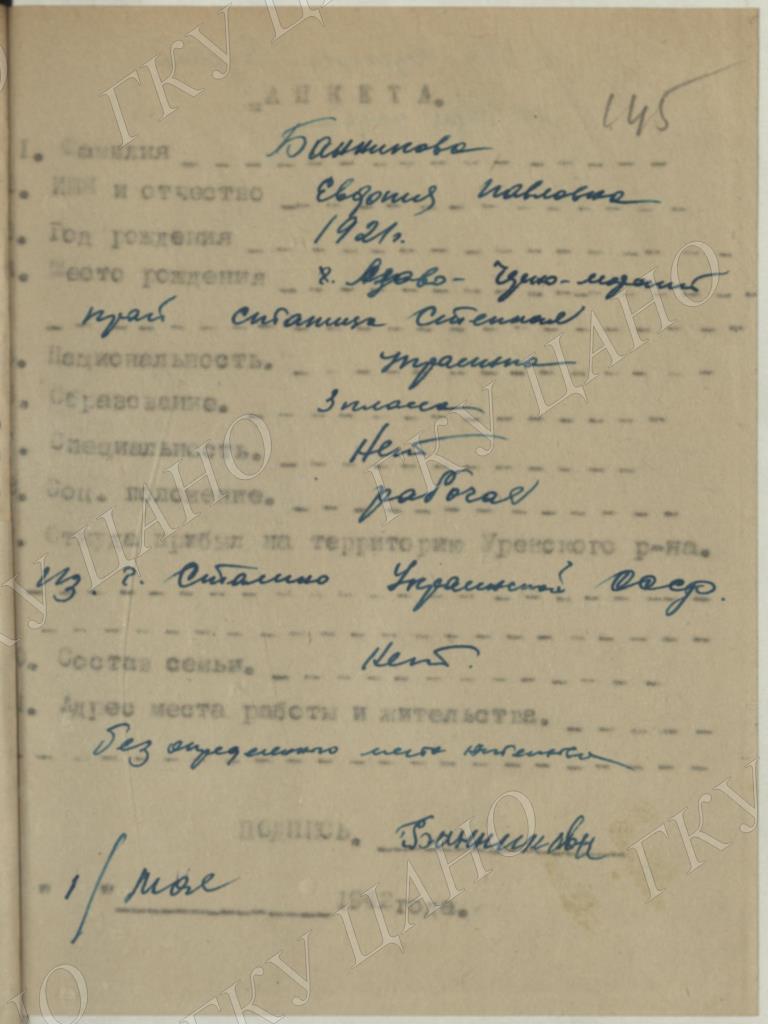 АНКЕТА.
145
1. Фамилия Банникова
. Имя и отчество Евдокия Павловна
. Год рождения 1921г.
. Место рождения г. Азово-
край станица Степная
. Национальность. украинка
. Образование. 3 класса
. Специальность. Нет
. Соц. положение. рабочая
. Откуда прибыл на территорию Уренского р-на.
из г. Сталино Украинской ССР.
. Состав семьи. Нет.
. Адрес места работы и жительства.
без определенного места жительства
ПОДПИСЬ. Банникова
"1" мая 1942 года.
ГКУ ЦАНО
ГКУ ЦАНО
ГКУ ЦАНО
ГКУ ЦАНО
ГКУ ЦАНО